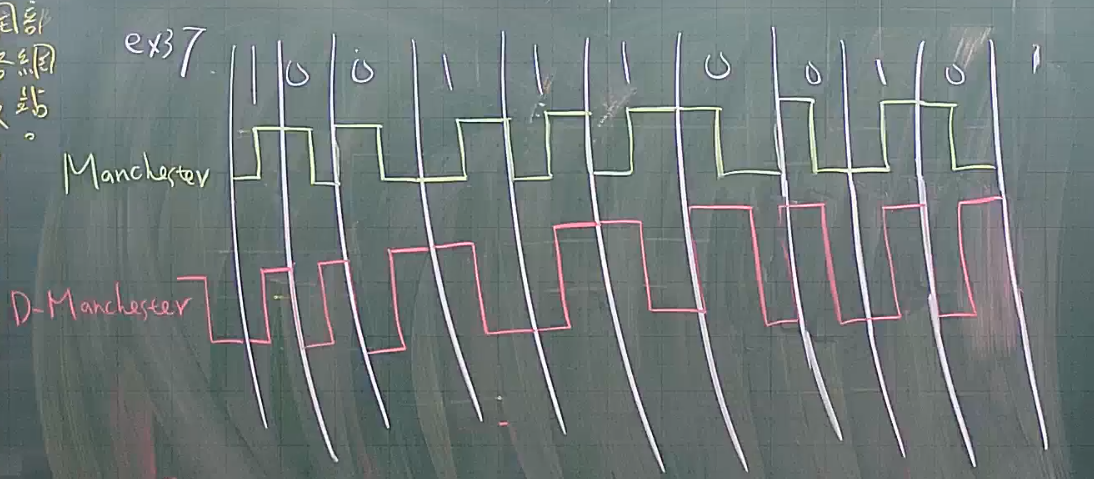 部
網
站
。
ex37.
1 0 0 1 1 1 0 0 1 0 1
Manchester
D-Manchester